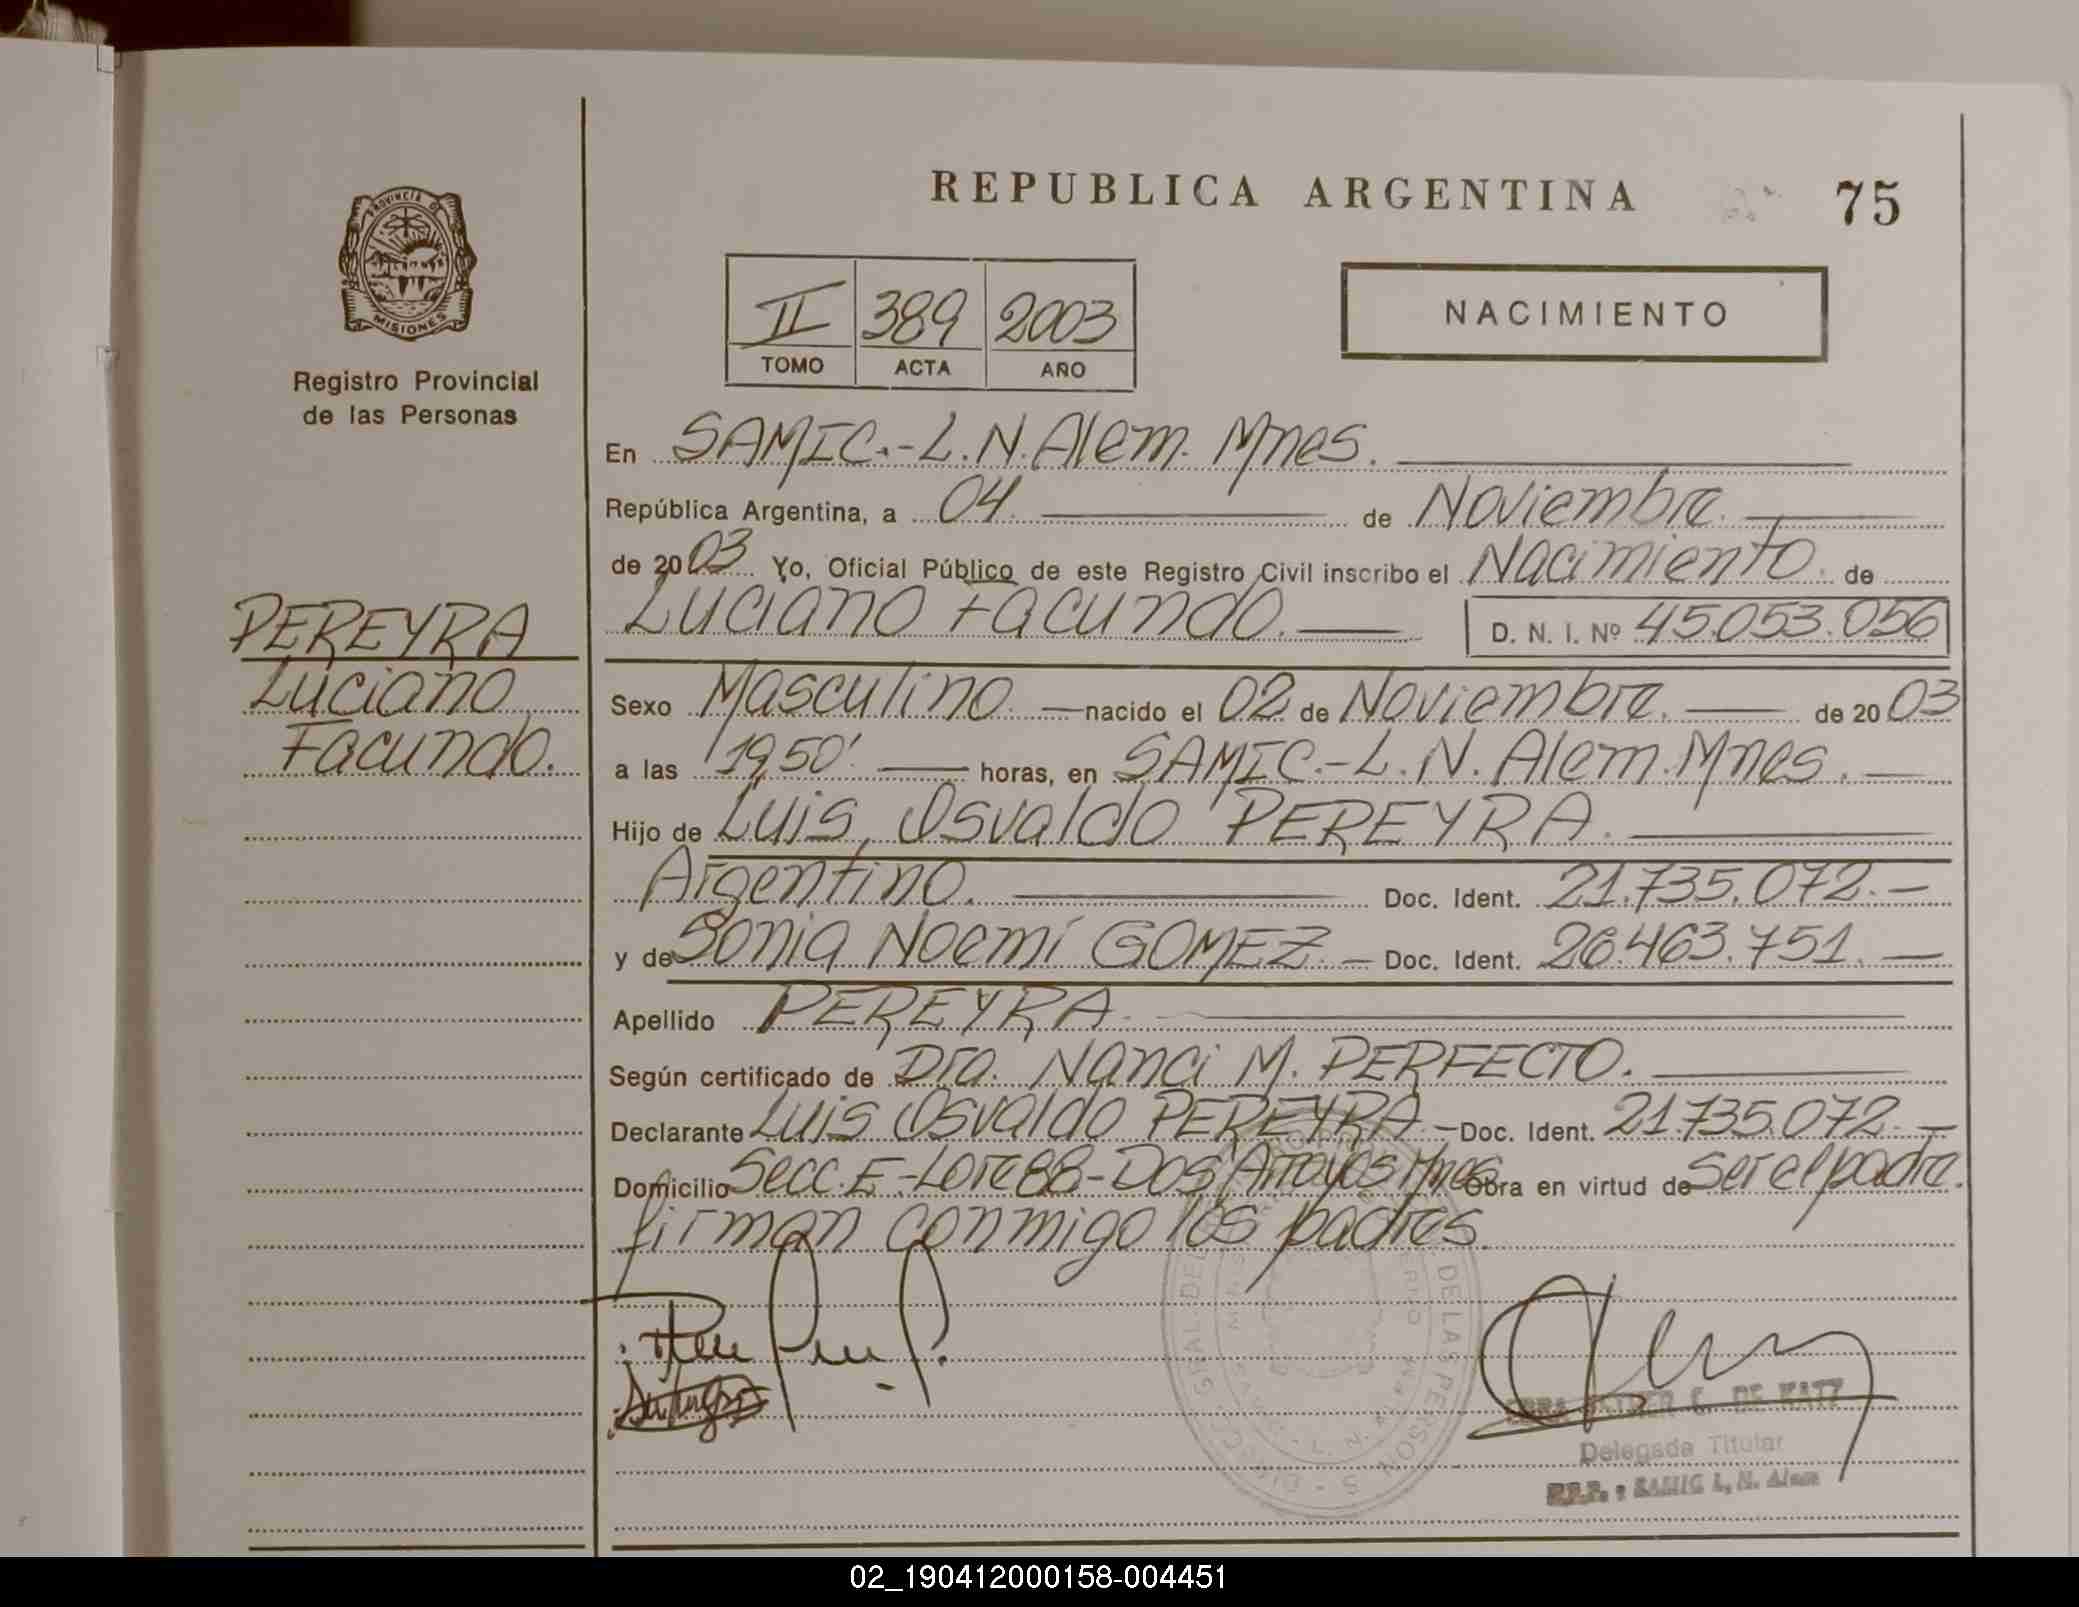 REPUBLICA ARGENTINA
75
PROVINCIA DE
MISIONES
Registro Provincial
de las Personas
II 389 2003
TOMO ACTA AÑO
NACIMIENTO
En SAMIC.-L.N.Alem. Mnes.
República Argentina, a 04. de Noviembre.
de 2003 Yo, Oficial Público de este Registro Civil inscribo el Nacimiento. de
Luciano Facundo. D. N. I. Nº 45.053.056
PEREYRA
Luciano
Facundo.
Sexo Masculino. nacido el 02 de Noviembre. de 2003
a las 19,50' horas, en SAMIC.-L.N. Alem. Mnes.
Hijo de Luis, Osvaldo PEREYRA.
Argentino. Doc. Ident. 21.735.072.-
y de Sonia Noemí GOMEZ.- Doc. Ident. 26.463.751.-
Apellido PEREYRA.
Según certificado de Dra. Nanci M. PERFECTO.
Declarante Luis Osvaldo PEREYRA.- Doc. Ident. 21.735.072.-
Domicilio Secc.E-Lote88-Dos Arroyos Mnes Obra en virtud de ser el padre.
firman conmigo los padres.
DE KATZ
Delegada Titular
SAMIC L. N. Alem
02_190412000158-004451